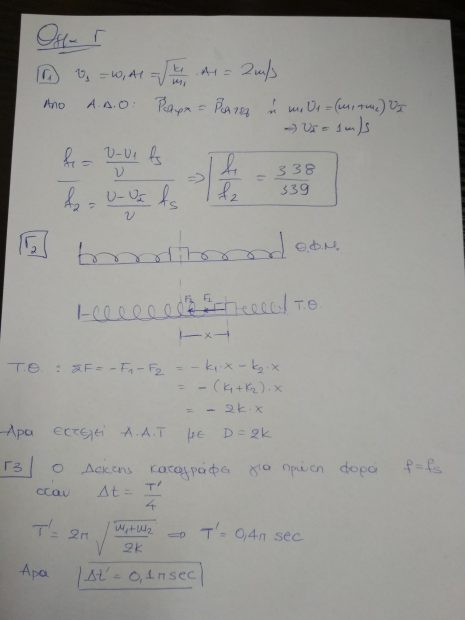 Θέμα Γ
Γ1 υ1 = ω1A1 = √(k1/m1) · A1 = 2m/s
Απο Α.Δ.Ο: Pαρχ = Pτελ ή m1υ1 = (m1+m2)υΣ
⇒ υΣ = 1m/s
f1 = (υ-υ1)/υ fs
f2 = (υ-υΣ)/υ fs ⇒ f1/f2 = 338/339
Γ2 Θ.Φ.Μ.
F2 F1 Τ.Θ.
x
Τ.Θ. : ΣF = -F1 - F2 = -k1·x - k2·x
= -(k1+k2)·x
= -2k·x
-Αρα εκτελεί Α.Α.Τ με D = 2k
Γ3 Ο Δέκτης καταγράφει για πρώτη φορα f=fs
όταν Δt = T'/4
T' = 2π √(m1+m2/2k) ⇒ T' = 0,4π sec
Αρα Δt' = 0,1π sec